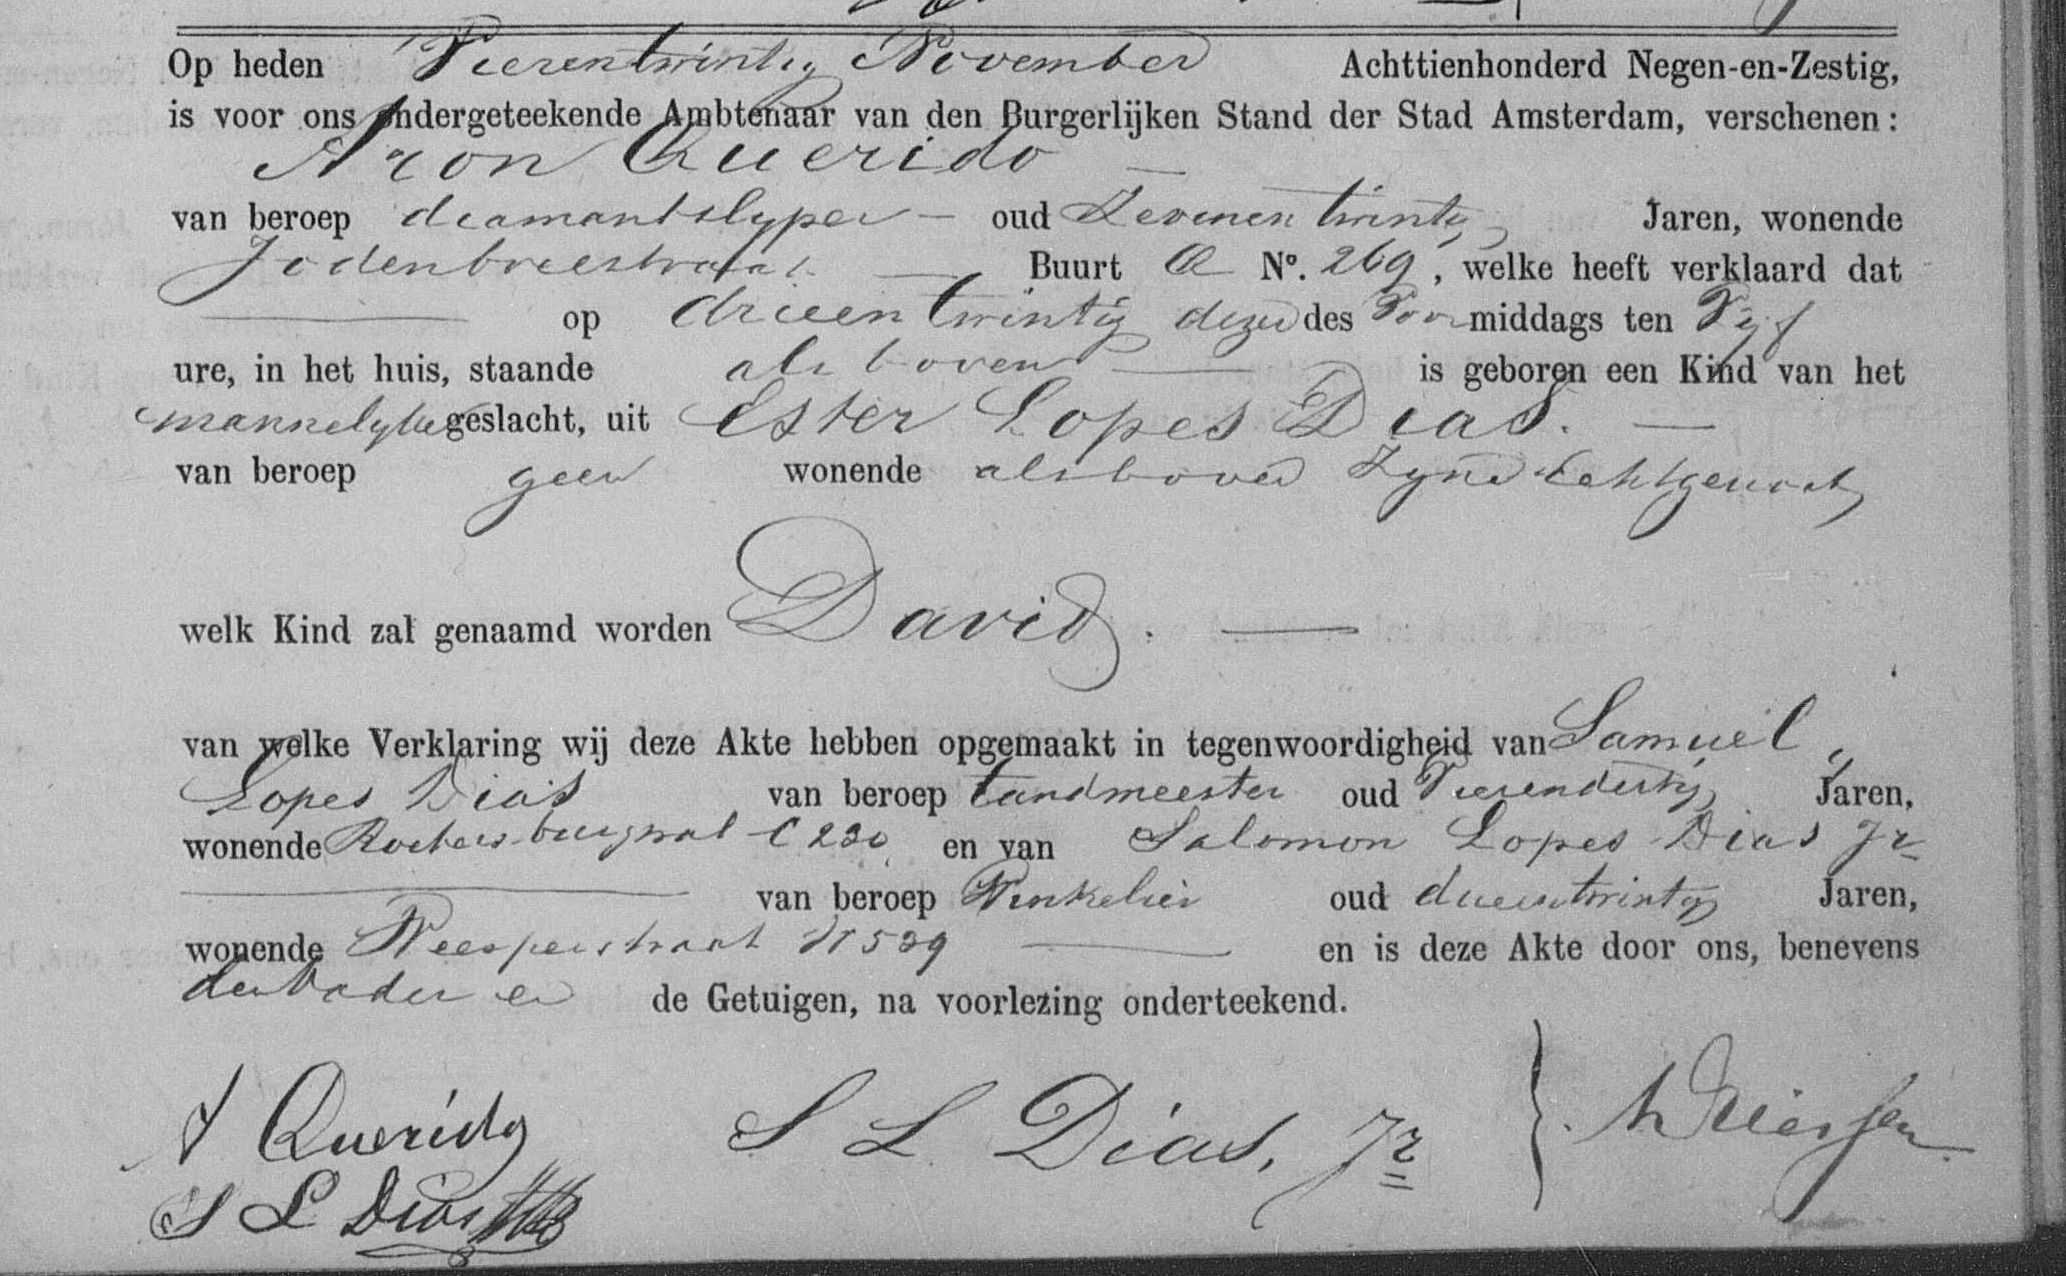 Op heden Vierentwintig November Achttienhonderd Negen-en-Zestig,
is voor ons ondergeteekende Ambtenaar van den Burgerlijken Stand der Stad Amsterdam, verschenen:
Aron Querido —
van beroep diamantslyper — oud Zevenentwintig Jaren, wonende
Jodenbreestraat — Buurt Q No. 269, welke heeft verklaard dat
— op drieentwintig dezer des Voormiddags ten Vyf
ure, in het huis, staande als boven — is geboren een Kind van het
mannelyke geslacht, uit Ester Lopes Dias. —
van beroep geen wonende als boven Zyne Echtgenoote
welk Kind zal genaamd worden David. —
van welke Verklaring wij deze Akte hebben opgemaakt in tegenwoordigheid van Samuel
Lopes Dias van beroep tandmeester oud Vierendertig Jaren,
wonende C 230 en van Salomon Lopes Dias Jr
— van beroep Winkelier oud drieentwintig Jaren,
wonende Weesperstraat 539 — en is deze Akte door ons, benevens
den Vader en de Getuigen, na voorlezing onderteekend.
A Querido
S L Dias, Jr
S L Dias